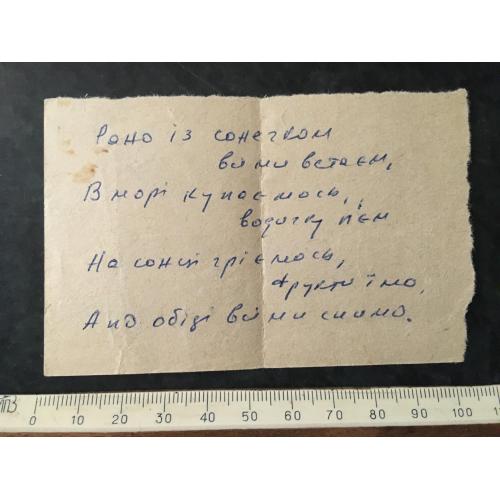 Рано із сонечком
всі ми встаєм,
В морі купаємось,
водичку п'єм
На сонці гріємось,
фрукти їмо,
А по обіді всі ми спимо.
0 10 20 30 40 50 60 70 80 90 100 110